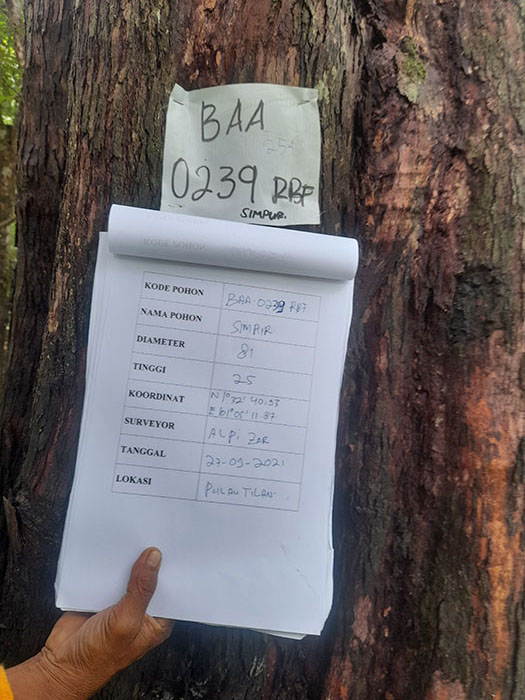 BAA
0239 RBF
SIMPUR
KODE POHON BAA.0239 RBF
NAMA POHON SIMPUR
DIAMETER 81
TINGGI 25
KOORDINAT N 1°32' 40.93
E 61°05' 11.87
SURVEYOR ALPI ZAR
TANGGAL 27-09-2021
LOKASI PULAU TILAN